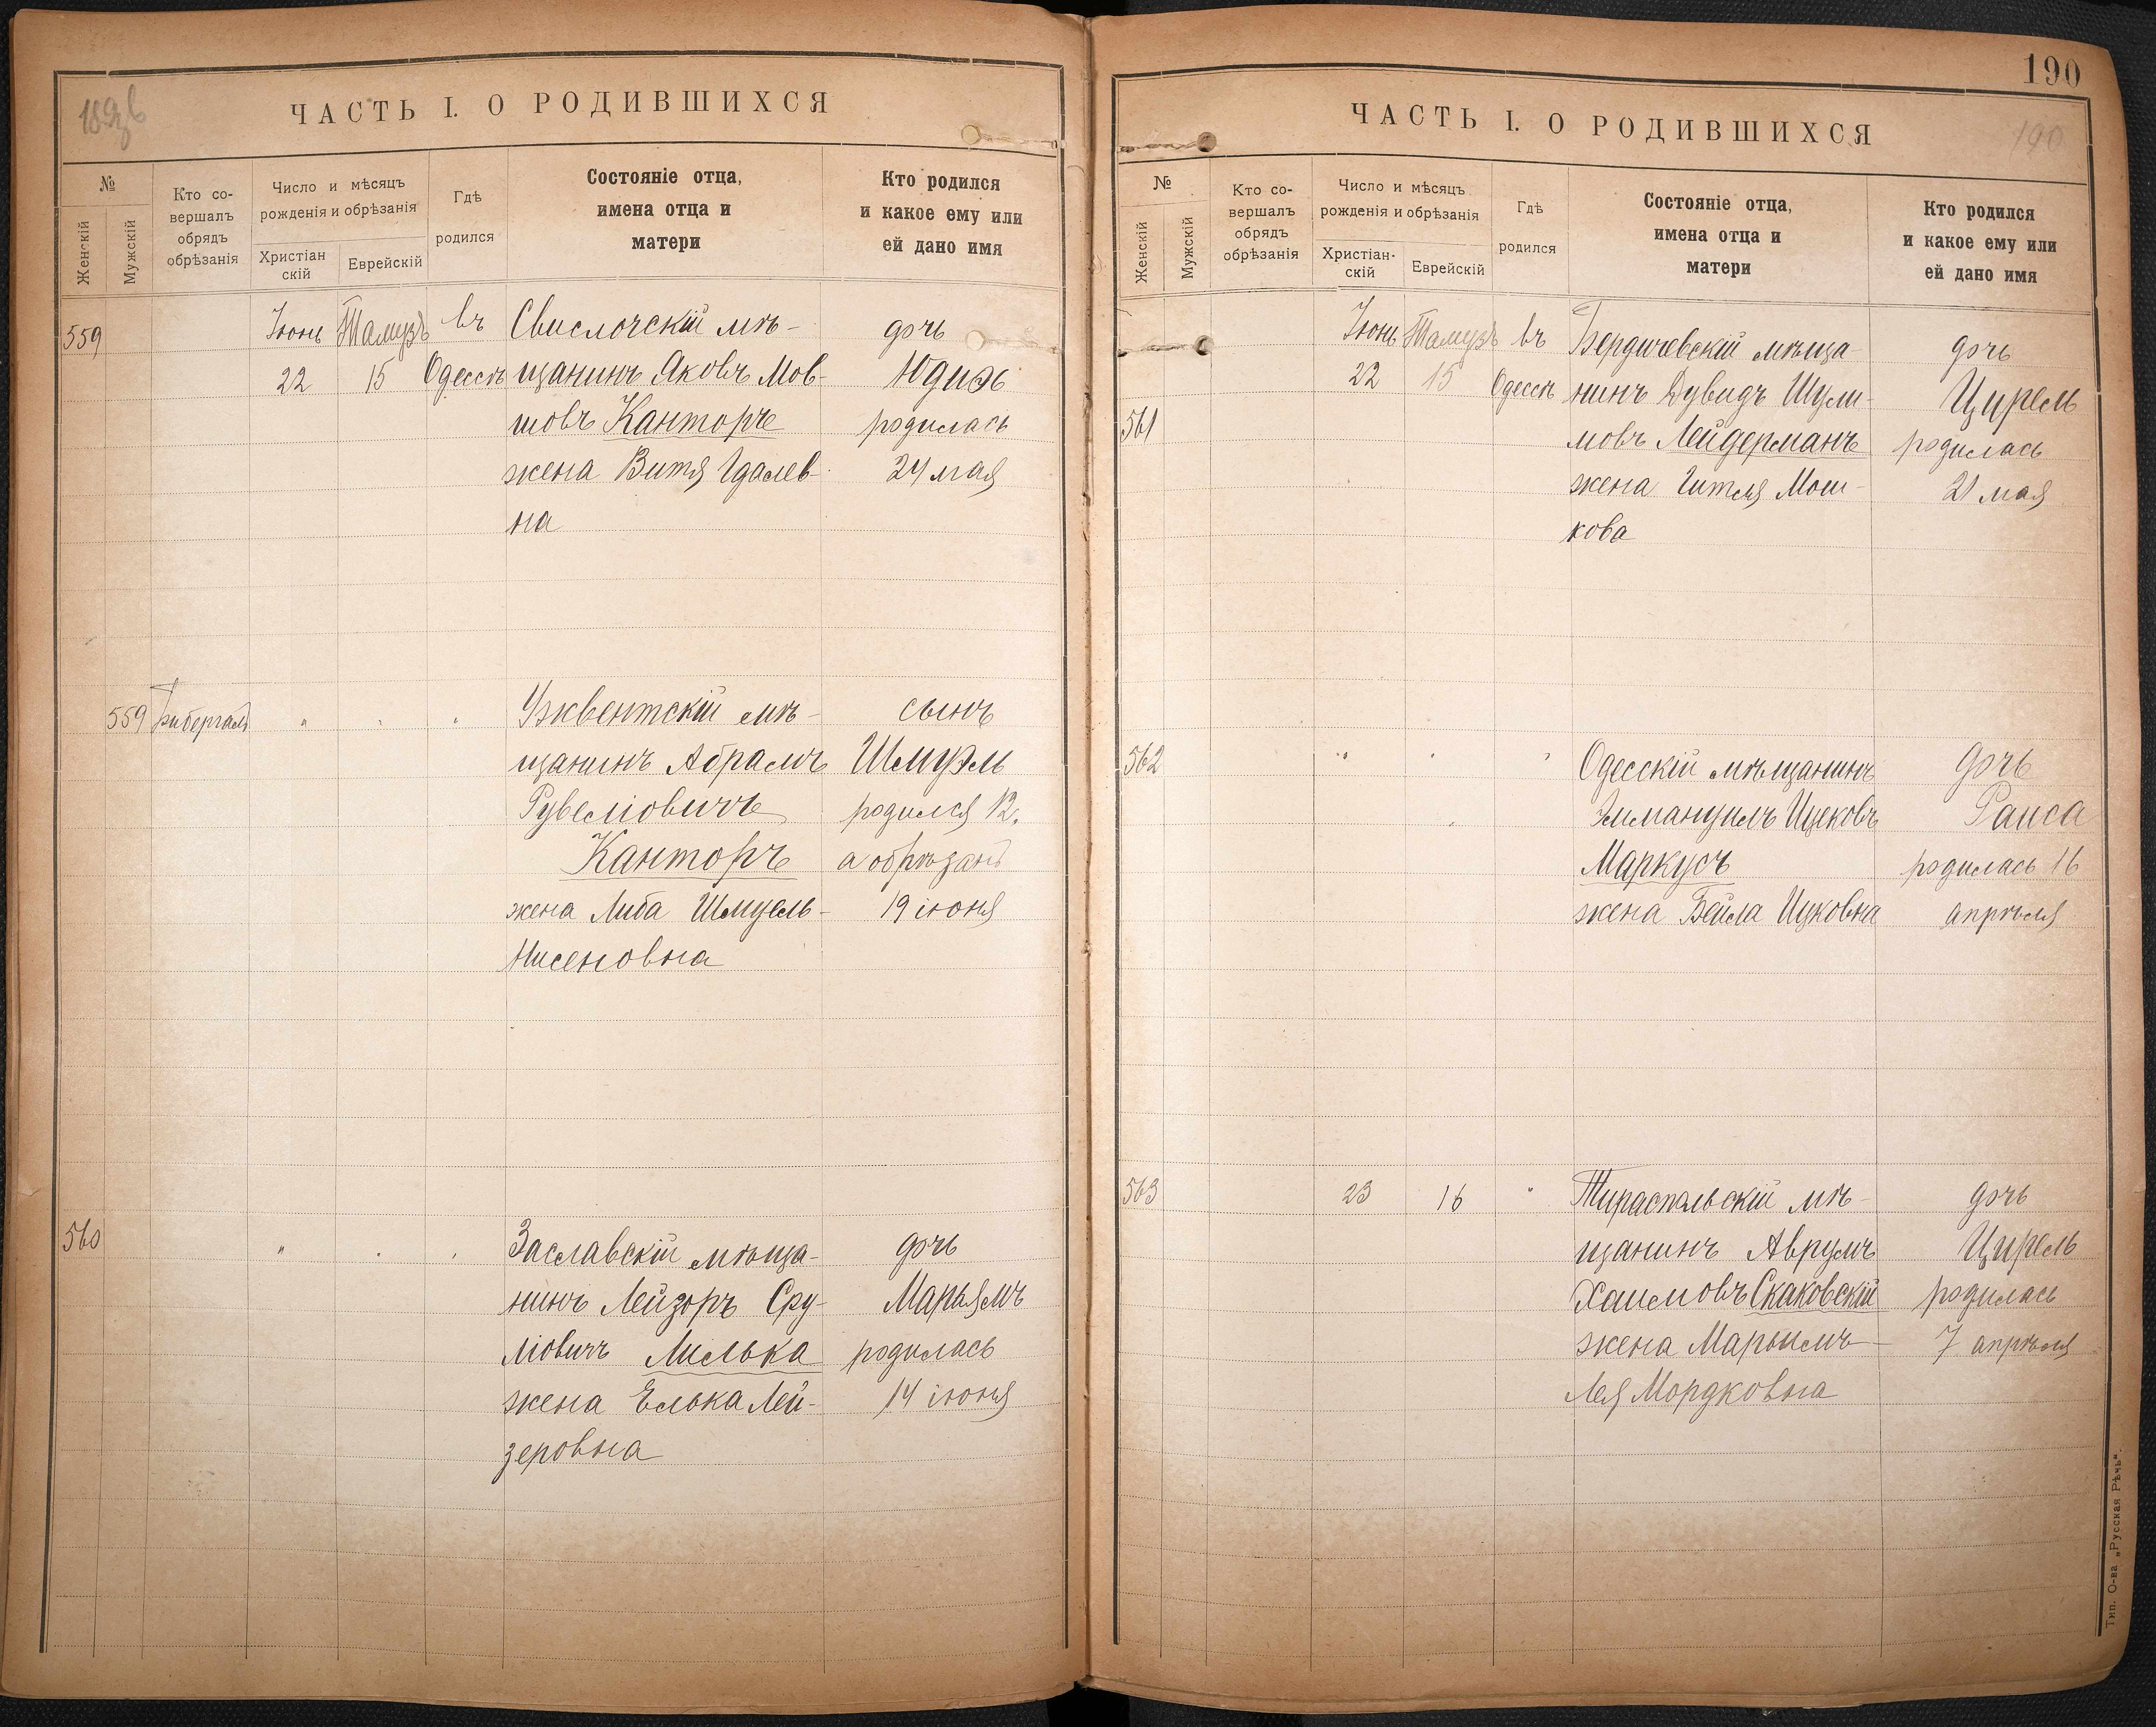 189
ЧАСТЬ I. О РОДИВШИХСЯ
№
Женскій
Мужскій
Кто со-
вершалъ
обрядъ
обрѣзанія
Число и мѣсяцъ
рожденія и обрѣзанія
Христіан
скій
Еврейскій
Гдѣ
родился
Состояніе отца,
имена отца и
матери
Кто родился
и какое ему или
ей дано имя
559
Іюнь Тамузъ въ
22 15 Одессѣ
Свислочскій мѣ-
щанинъ Яковъ Мов-
шовъ Канторъ
жена Витя Гдалев-
на
дочь
Юдиѳь
родилась
24 мая
559
" " "
Ужвентскій мѣ-
щанинъ Абрамъ
Рувеліовичъ
Канторъ
жена Либа Шмуель-
Нисеновна
сынъ
Шмуэль
родился 12,
а обрѣзанъ
19 іюня
560
" " "
Заславскій мѣща-
нинъ Лейзоръ Сру-
ліовичъ Милька
жена Елька Лей-
зеровна
дочь
Марьямъ
родилась
14 іюня
190
ЧАСТЬ I. О РОДИВШИХСЯ
190
№
Женскій
Мужскій
Кто со-
вершалъ
обрядъ
обрѣзанія
Число и мѣсяцъ
рожденія и обрѣзанія
Христіан-
скій
Еврейскій
Гдѣ
родился
Состояніе отца,
имена отца и
матери
Кто родился
и какое ему или
ей дано имя
561
Іюнь Тамузъ въ
22 15 Одессѣ
Бердичевскій мѣща-
нинъ Дувидъ Шули-
мовъ Лейдерманъ
жена Гитля Мош-
кова
дочь
Цирель
родилась
21 мая
562
" " "
Одесскій мѣщанинъ
Эммануилъ Ицковъ
Маркусъ
жена Бейла Ицковна
дочь
Раиса
родилась 16
апрѣля
563
23 16 "
Тираспольскій мѣ-
щанинъ Аврумъ
Хаимовъ Скаковскій
жена Марьимъ-
Лея Мордковна
дочь
Цирель
родилась
7 апрѣля
Тип. О-ва „Русская Рѣчь".